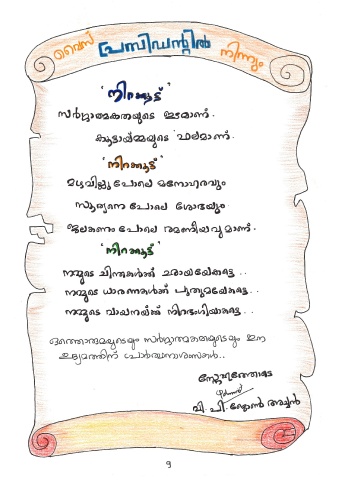 വൈസ് പ്രസിഡന്റിൽ നിന്നും
'നിറക്കൂട്ട്'
സർഗ്ഗാത്മകതയുടെ ഇടമാണ്.
കൂട്ടായ്മയുടെ ഫലമാണ്.
'നിറക്കൂട്ട്'
മഴവില്ലു പോലെ മനോഹരവും
സൂര്യനെ പോലെ ശോഭയും
ജലകണം പോലെ രമണീയവുമാണ്.
'നിറക്കൂട്ട്'
നമ്മുടെ ചിന്തകൾക്ക് ചായമേകട്ടെ..
നമ്മുടെ ധാരണകൾക്ക് പുതുമയേകട്ടെ...
നമ്മുടെ വായനയ്ക്ക് നിറഭംഗിയാകട്ടെ...
ഒത്തൊരുമയുടെയും സർഗ്ഗാത്മകതയുടെയും ഈ
ഉദ്യമത്തിന് പ്രാർത്ഥനാശംസകൾ..
സ്നേഹത്തോടെ
വി. പി. ജോൺ അച്ചൻ
9